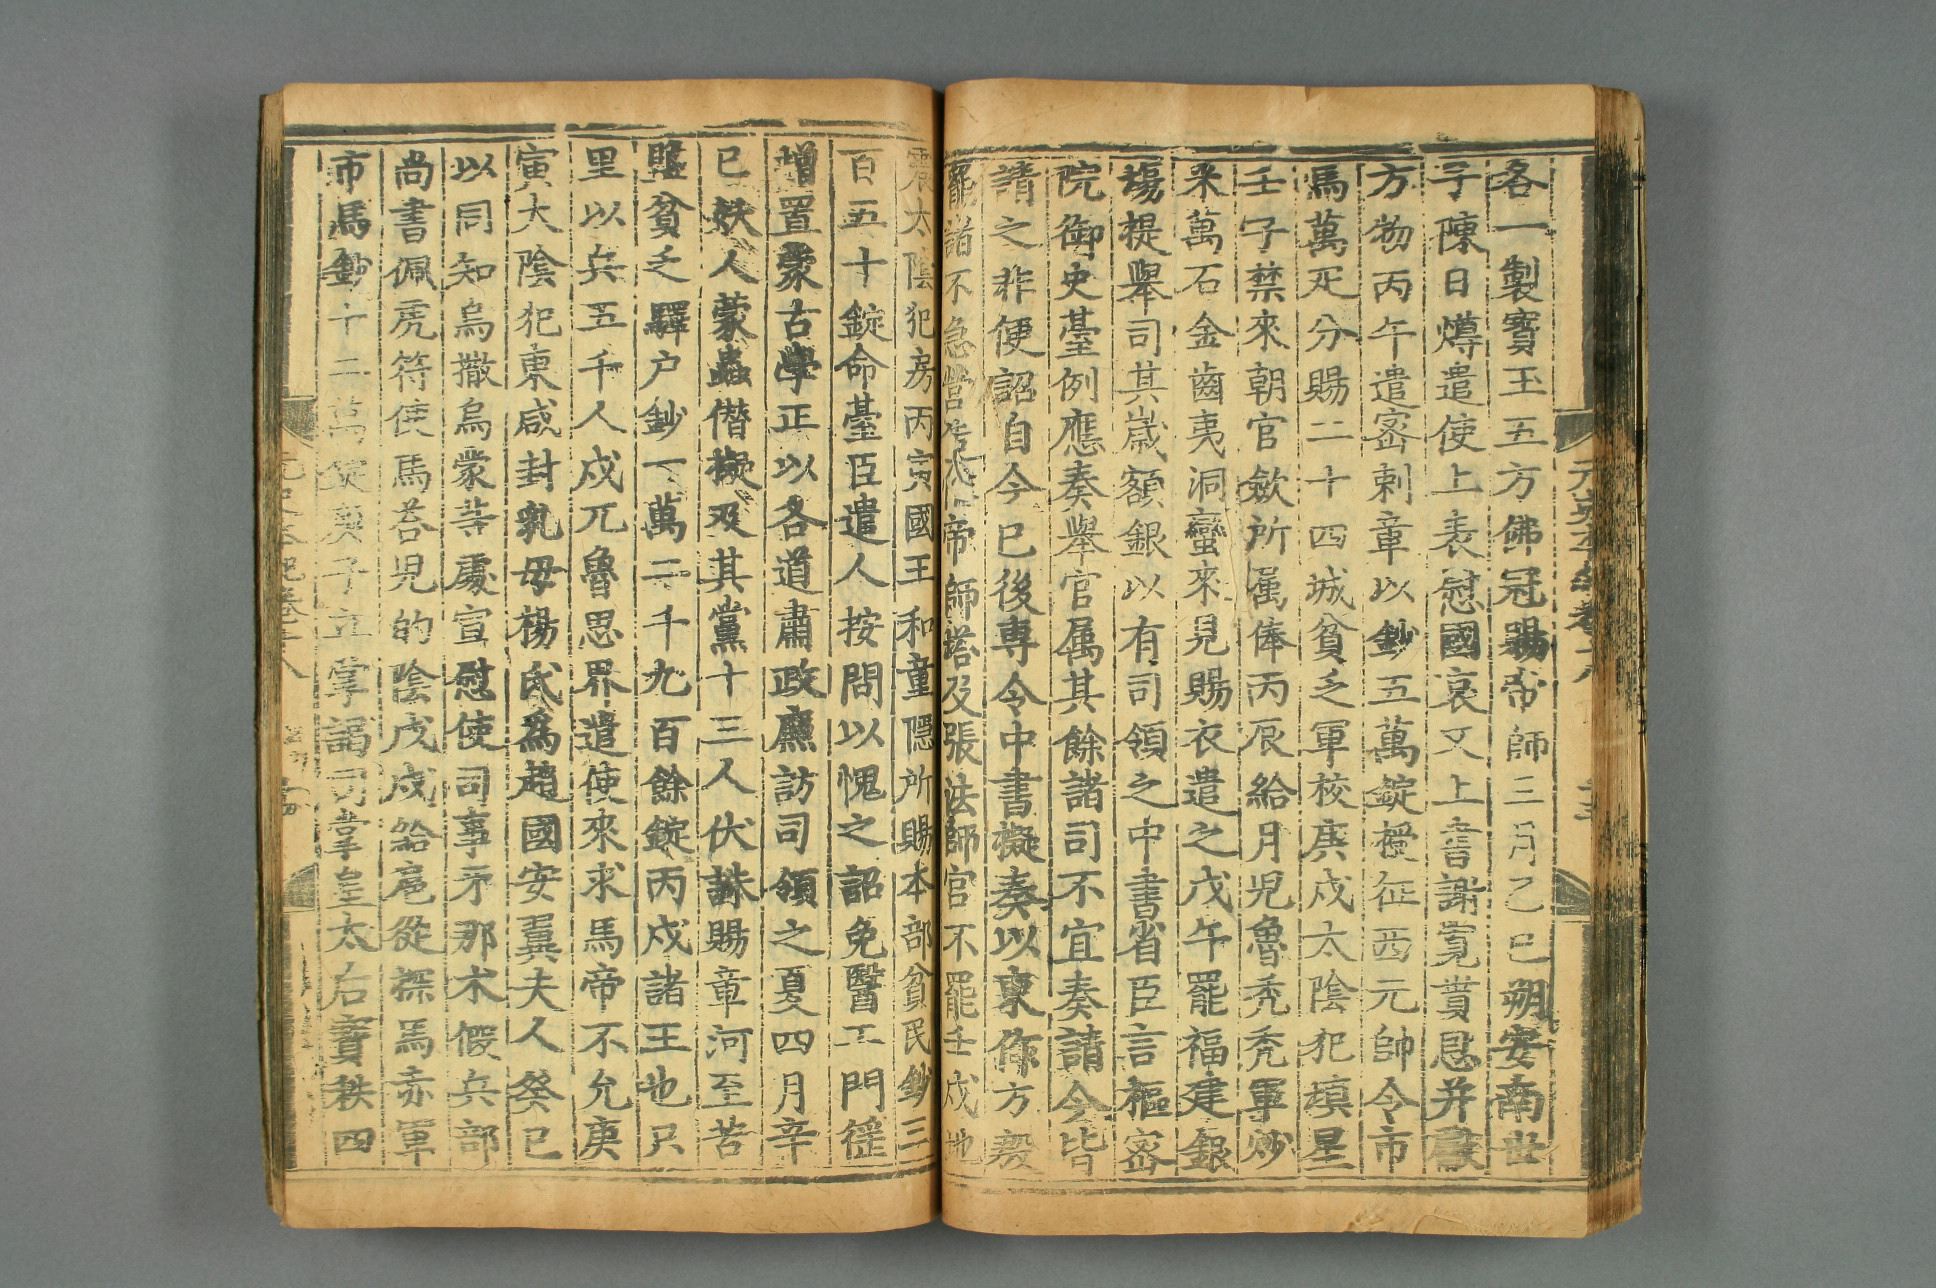 各一製寶玉五方佛冠賜帝師三月乙巳朔安南世
子陳日燇遣使上表慰國哀又上書謝寬貰恩并獻
方物丙午遣密剌章以鈔五萬錠授征西元帥令市
馬萬疋分賜二十四城貧乏軍校庚戌太陰犯塡星
壬子禁來朝官斂所属俸丙辰給月児魯禿禿軍炒
米萬石金齒夷洞蠻來見賜衣遣之戊午罷福建銀
塲提舉司其歲額銀以有司領之中書省臣言樞密
院御史䑓例應奏舉官属其餘諸司不宜奏請今皆
請之非便詔自今已後専令中書擬奏以東作方殷
罷諸不急營帝師塔及張法師宫不罷壬戌地
震太陰犯房丙寅國王和童隱所賜本部貧民鈔三
百五十錠命䑓臣遣人按問以愧之詔免醫工門徭
增置蒙古學正以各道肅政廉訪司領之夏四月辛
巳妖人蒙蟲僭擬及其黨十三人伏誅賜章河至苦
鹽貧乏驛户鈔一萬二千九百餘錠丙戌諸王也只
里以兵五千人戍兀魯思界遣使來求馬帝不允庚
寅大陰犯東咸封乳毋楊氏為趙國安翼夫人癸巳
以同知烏撒烏蒙等處宣慰使司事牙那木假兵部
尚書佩虎符使馬荅児的隂戊戌給扈從探馬赤軍
市馬鈔十二萬錠癸子立掌謁司掌皇太后寳秩四
元史本紀卷十八